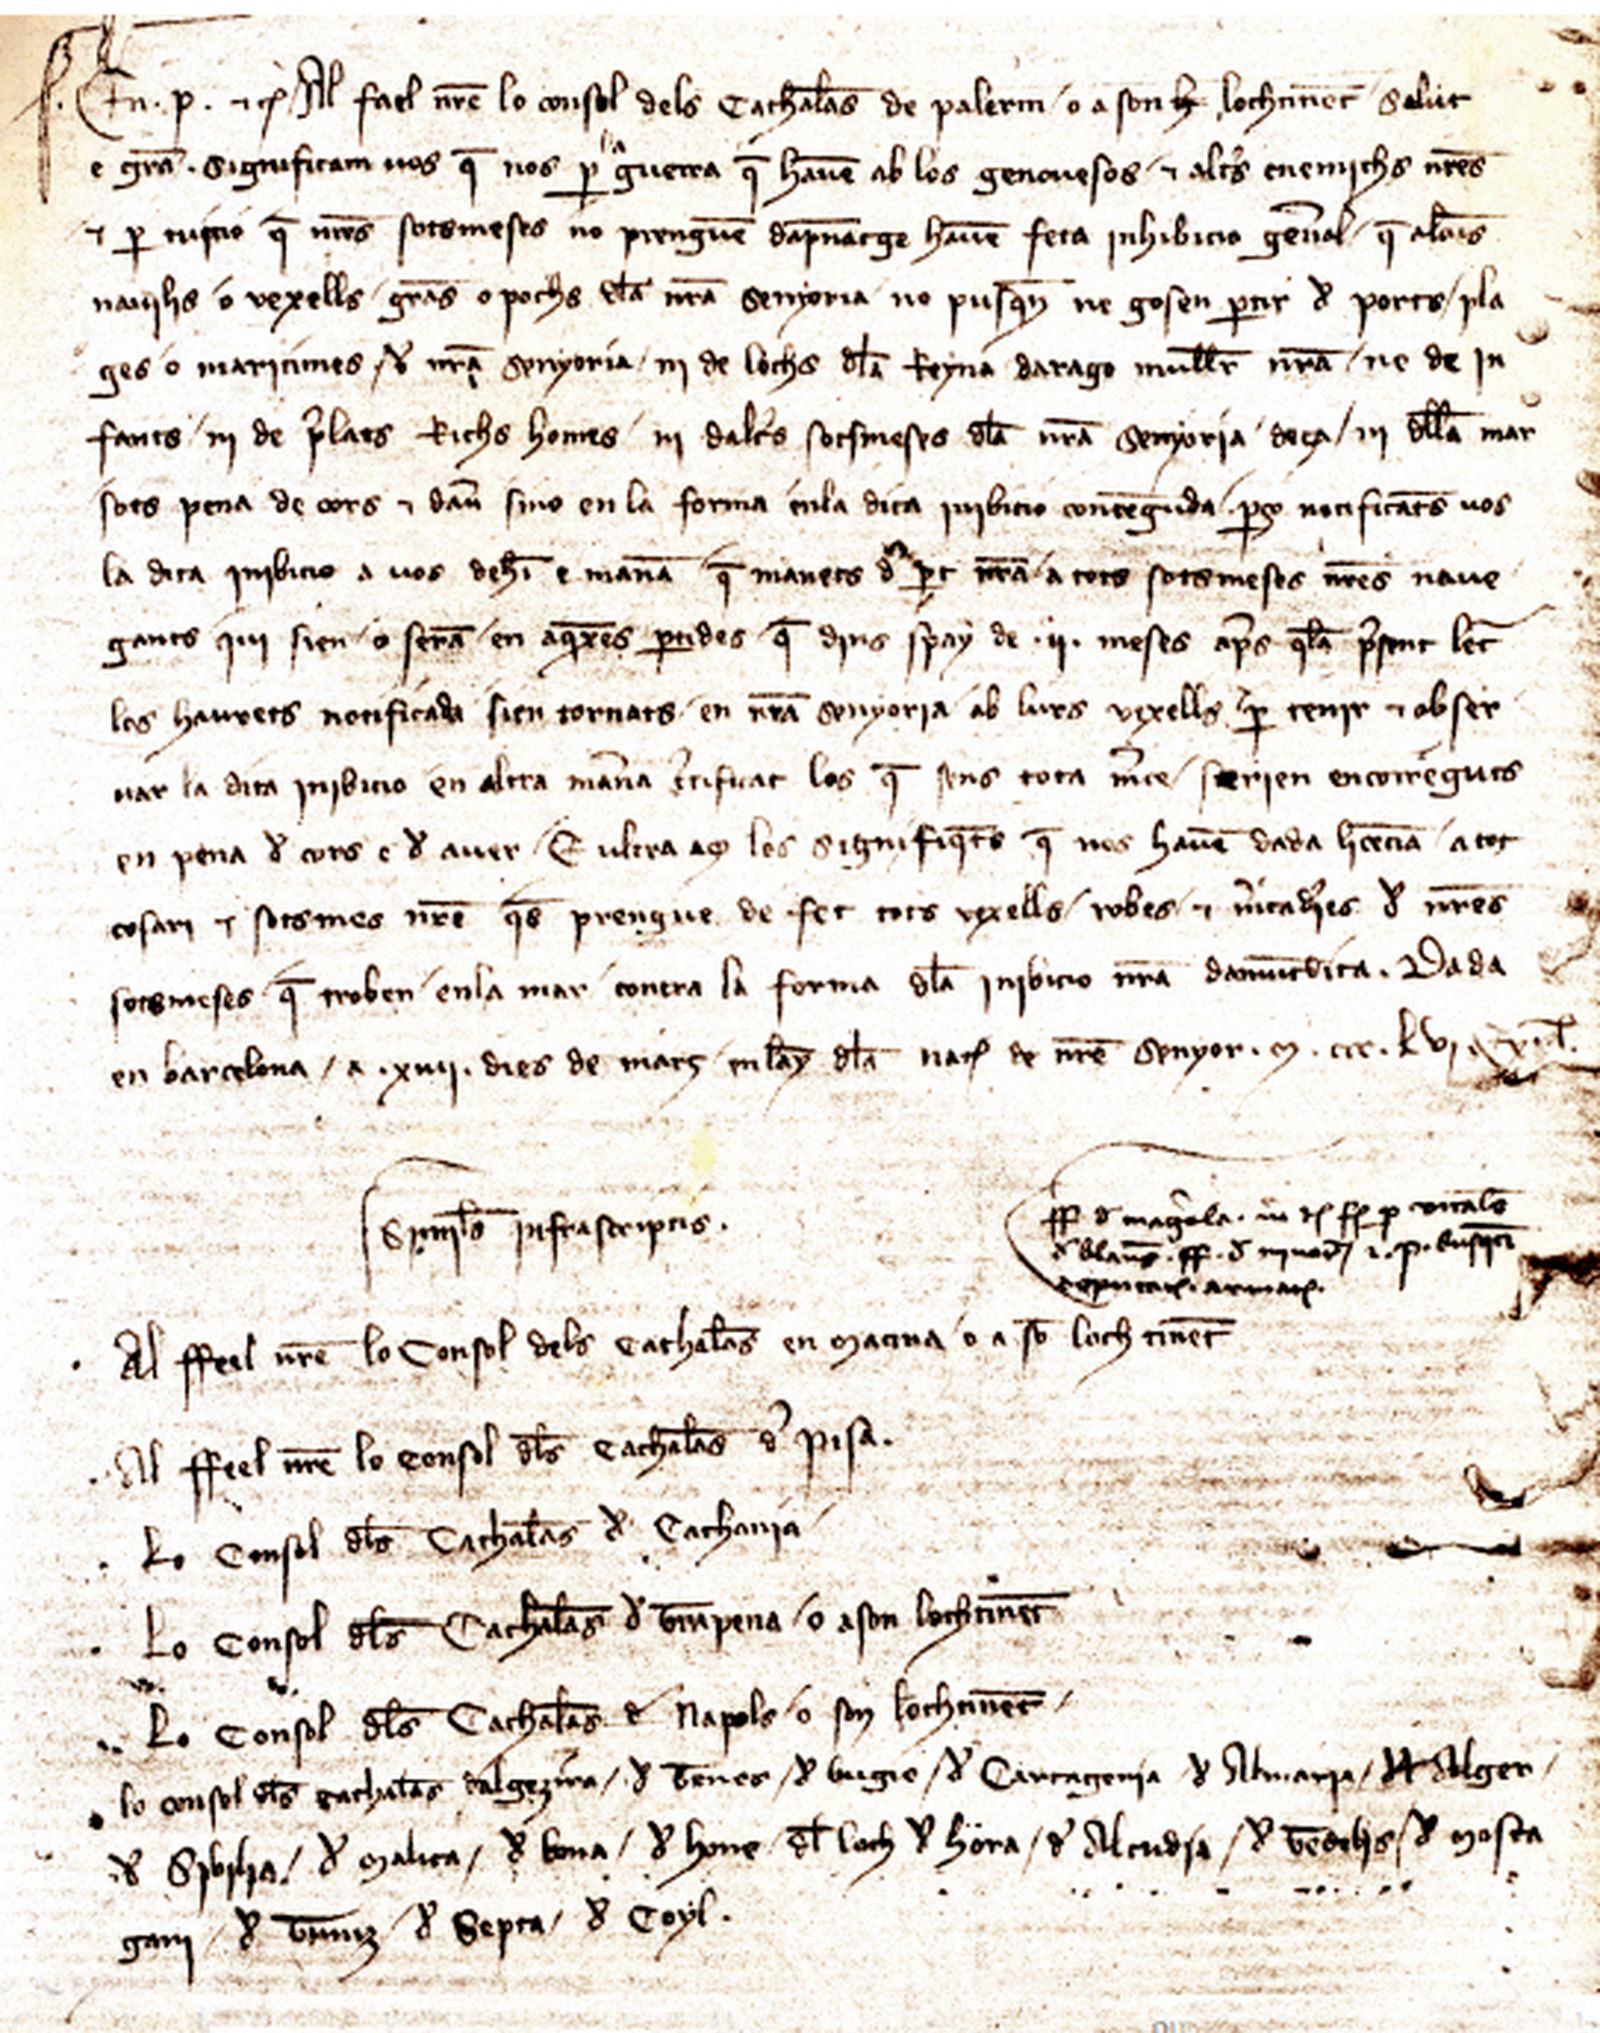 En .p. etc. Al feel nr̄e lo consol dels Cathalās de palerm o a son lochtinēt Salut
e grā. Significam uos q̄ nos p̱ la guerra q̄ hauē ab los genouesos ⁊ altr̄s enemichs nr̄es
⁊ p̱ tuicio q̄ nr̄es sotsmeses no prenguē dāpnatge hauē feta inhibicio gen̄al q̄ alc̄us
nauilis o vexells grās o pochs dl̄a nr̄a Senyoria no pusq̄n ne gosen p̱tir d̉ ports pla
ges o maritimes d̉ nr̄a Senyoria ni de lochs dl̄a Reyna darago mull̄r nr̄a ne de In
fants ni de p̄lats Richs homes ni daltr̄s sotsmeses dl̄a nr̄a Senyoria deça ni dell̄a mar
sots pena de cors ⁊ dau̅ sino en la forma enla dita inibicio contēguda p̱ço notificāts uos
la dita inibicio a uos dehī e manā q̄ manets d̉ p̱t nr̄a a tots sotsmeses nr̄es naue
gants qui sien o serā en aq̄xes p̱tides q̄ dins spay de .ii. meses ap̄s ql̄a p̄sent let̄
los haurets notificada sien tornats en nr̄a Senyoria ab lurs vexells p̱ tenir ⁊ obser
uar la dita inibicio en altra man̄a c̄tificat los q̄ sens tota m̄ce serien encorreguts
en pena d̉ cors e d̉ auer E ultra aço los significāts q̄ nos hauē dada licēcia a tot
cosari ⁊ sotsmes nr̄e q̄s prengue de fet tots vexells robes ⁊ m̄cad̄ies d̉ nr̄es
sotsmeses q̄ troben enla mar contra la forma dl̄a inibicio nr̄a damūtdita. Dada
en barcelona a .xviij. dies de març en lāy dl̄a nat̄ de nr̄e Senyor .M. ccc. Lvi.
Simil̄s infrascriptis.
Al ffeel nr̄e lo Consol dels Cathalās en Macina o a sō lochtinēt
Al ffeel nr̄e lo Consol dl̄s Cathalās d̉ Pisa.
Lo Consol dl̄s Cathalās d̉ Cathania
Lo Consol dl̄s Cathalās d̉ Trapena o a son lochtinēt
Lo Consol dl̄s Cathalās d̉ Napols o son lochtinēt
lo consol dl̄s cathalās dalgezira / d̉ Tenes / d̉ bugie / d̉ Cartagenia d̉ Almaria / d̉ Alger
d̉ Sibilia / d̉ Malica / d̉ bona / d̉ hone dl̄ loch d̉ hora / d̉ Alcudia / d̉ Tedelis / d̉ Mosta
gani / d̉ Tuniz d̉ Septa / d̉ Coyl.